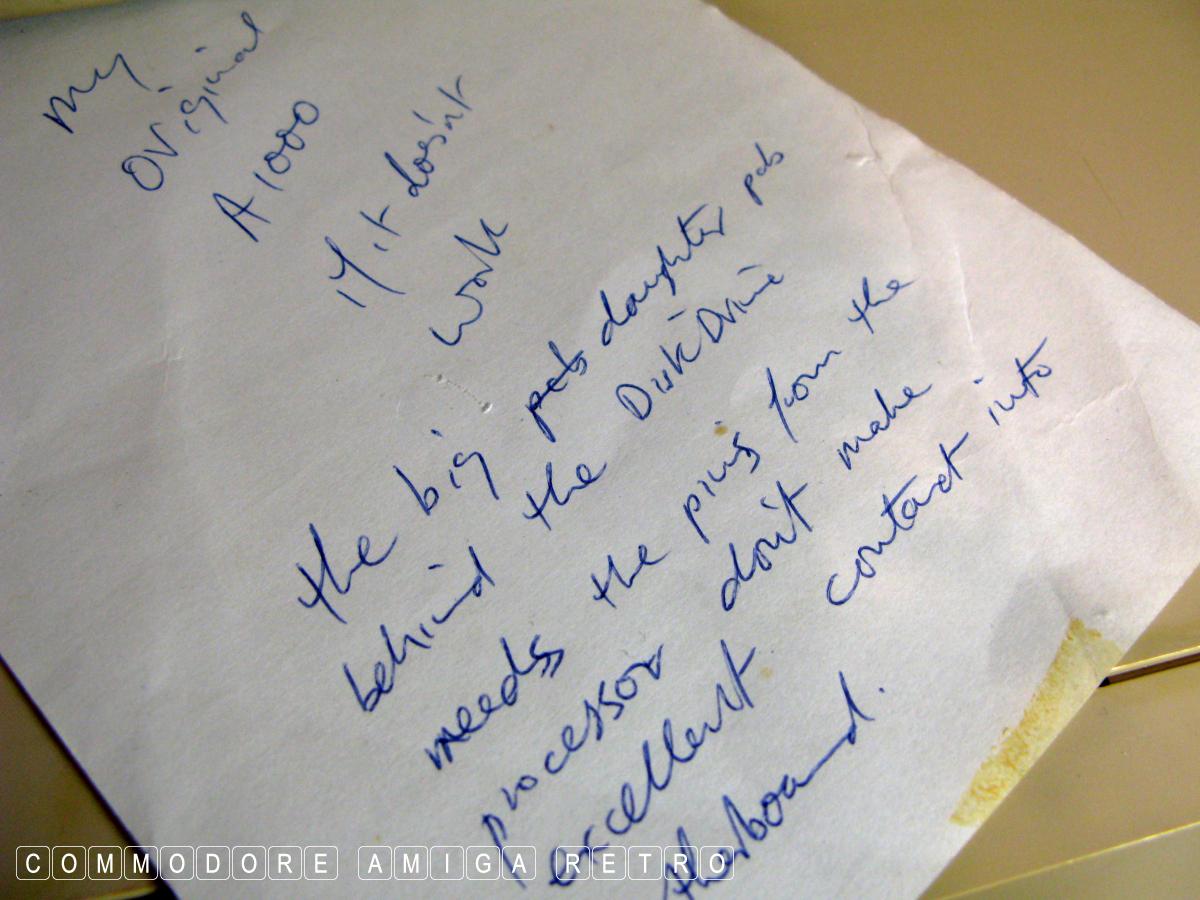 my
original
A1000
if it does'nt
work
the big pcb daughter pcb
behind the Disk Drive
needs the pins from the
processor don't make
excellent contact into
the board.
COMMODORE AMIGA RETRO